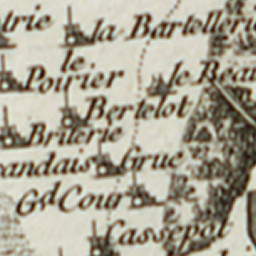 trie
la Bartellerie
le
Poirier
le Beau
Bertelot
Briterie
andais
Grue
Gd Cour
Cassepot